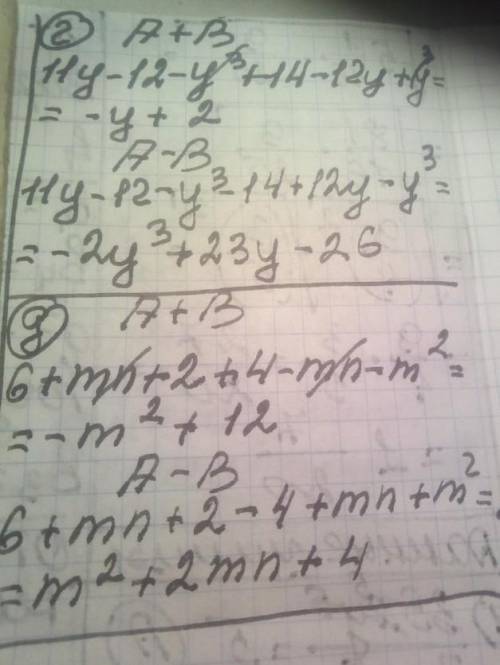 г) A+B
11y-12-y³+14-12y+y³=
= -y + 2
A-B
11y-12-y³-14+12y-y³=
= -2y³+23y-26
д) A+B
6+mn+2+4-mn-m²=
= -m²+12
A-B
6+mn+2-4+mn+m²=
= m²+2mn+4